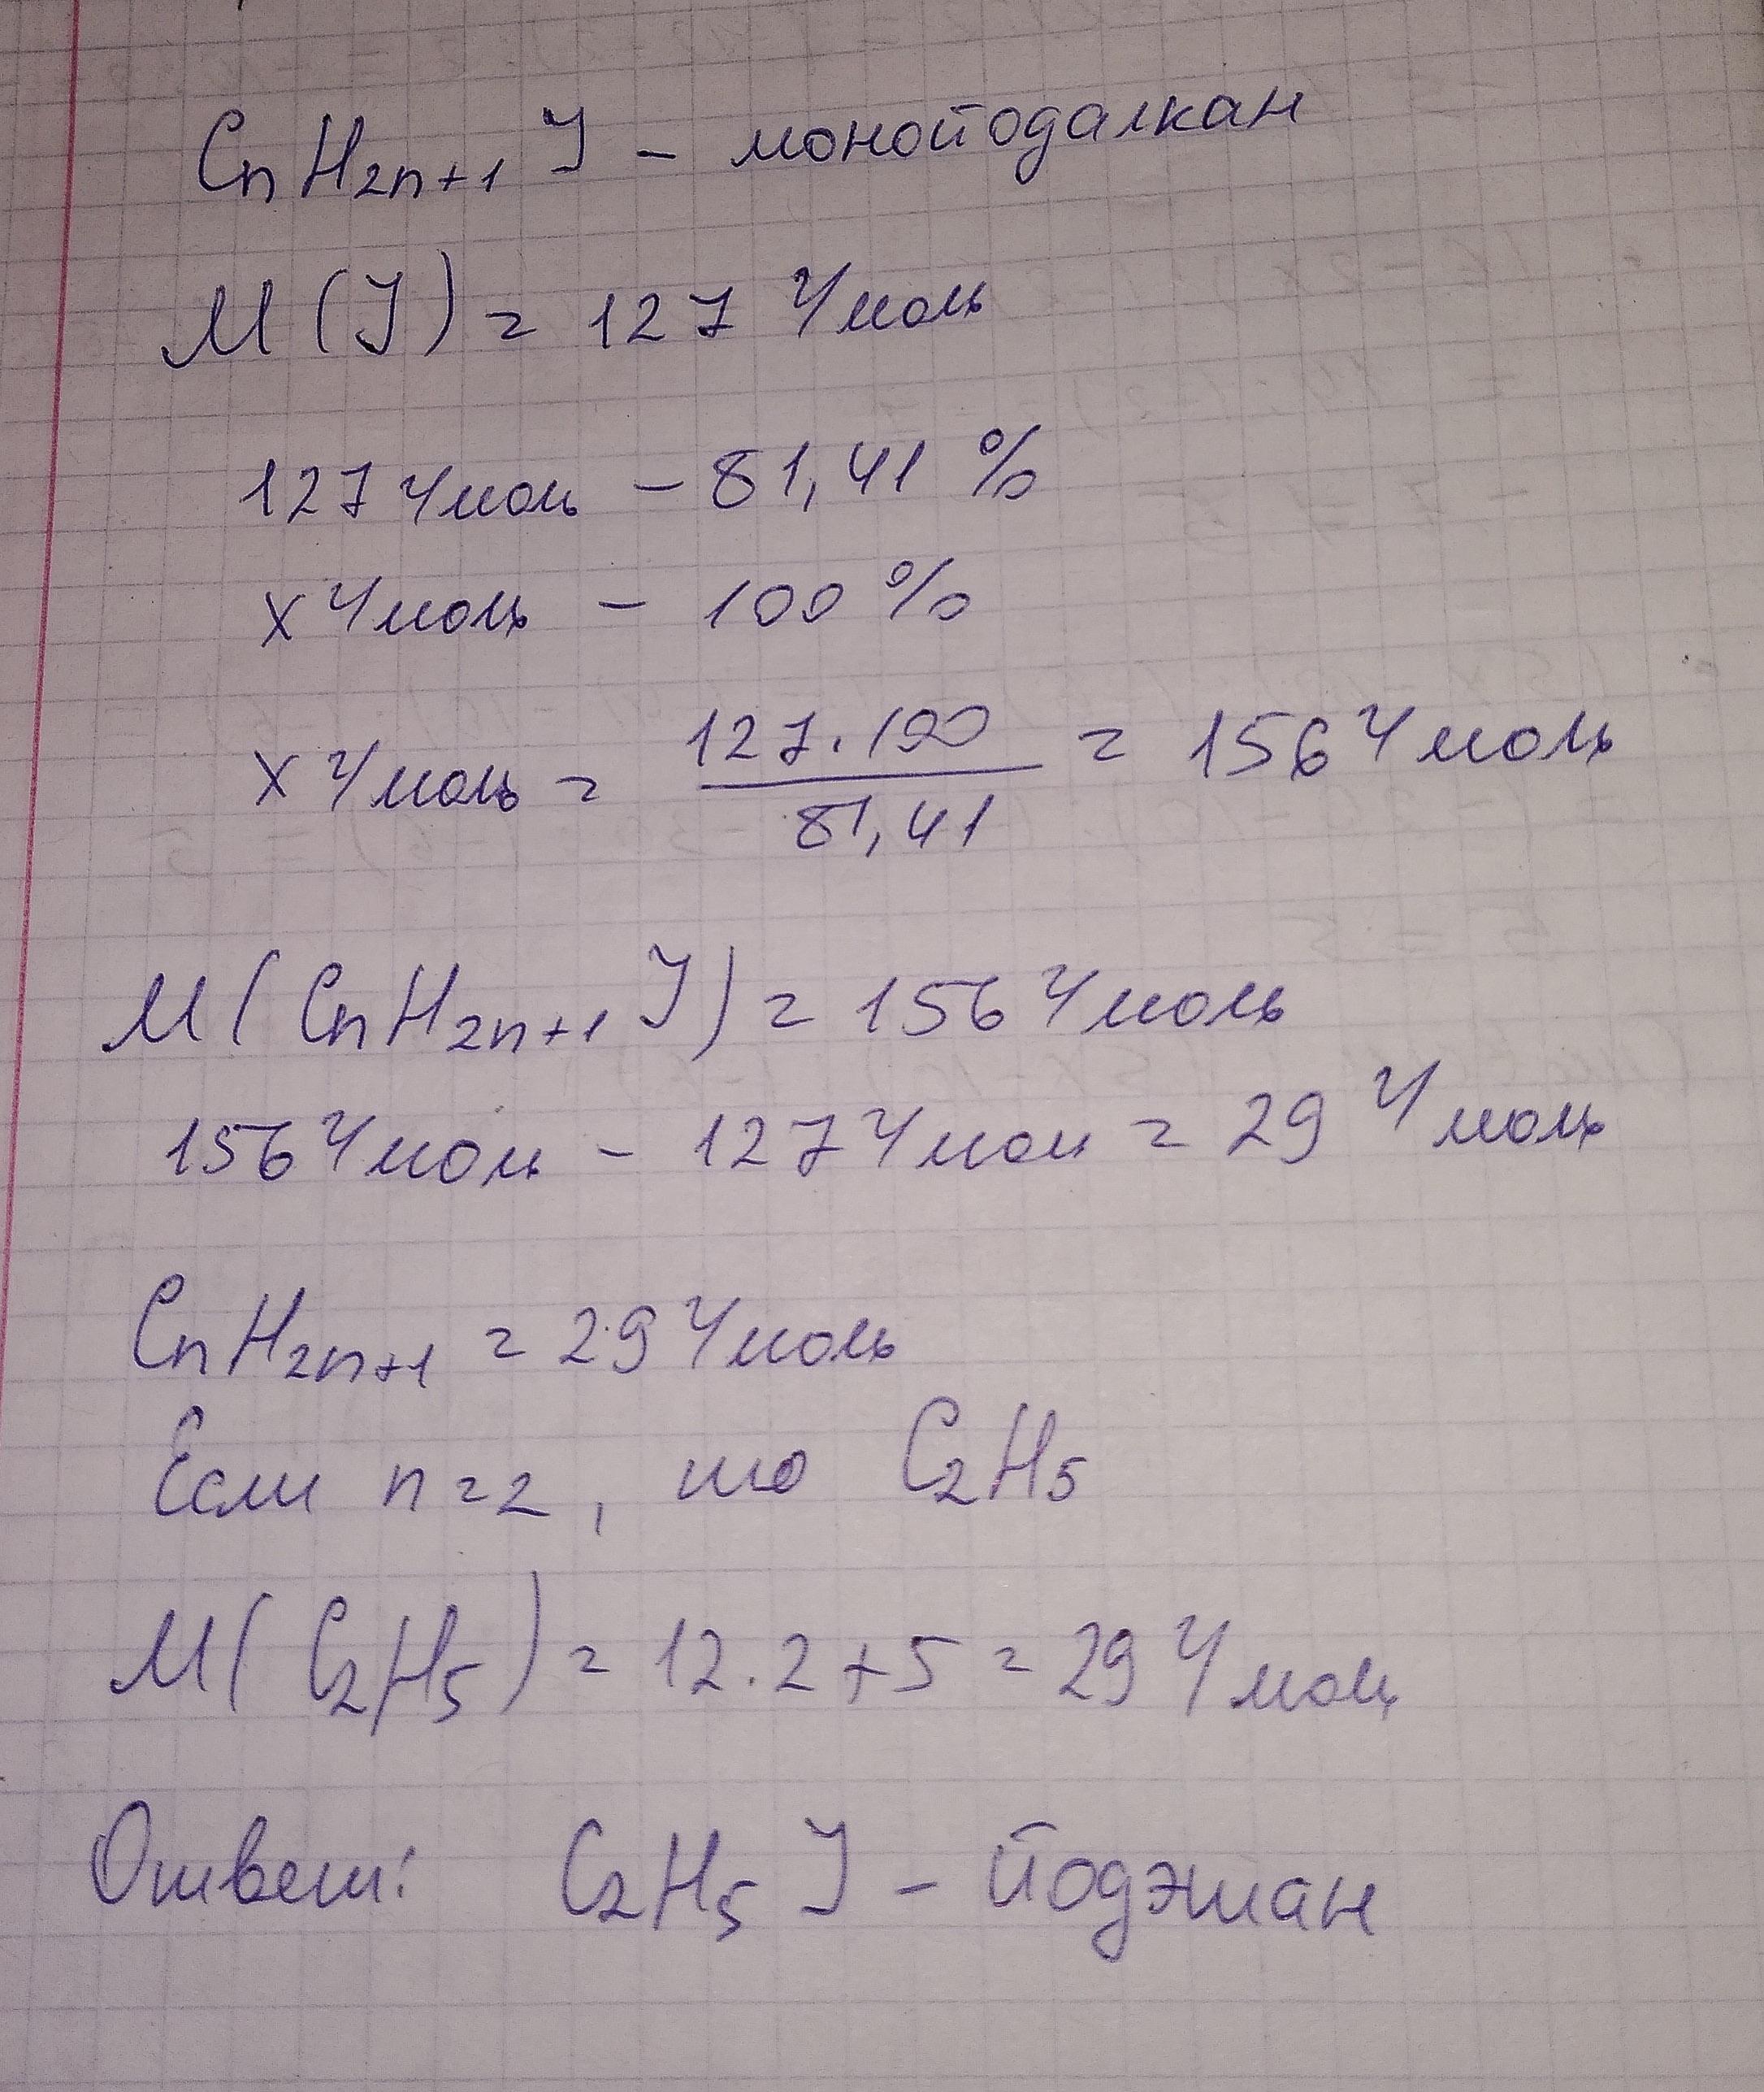 CnH2n+1 J – монойодалкан
M(J) = 127 г/моль
127 г/моль – 81,41 %
x г/моль – 100 %
x г/моль = 127·100 / 81,41 = 156 г/моль
M(CnH2n+1 J) = 156 г/моль
156 г/моль – 127 г/моль = 29 г/моль
CnH2n+1 = 29 г/моль
Если n=2, то C2H5
M(C2H5) = 12·2+5 = 29 г/моль
Ответ: C2H5 J – йодэтан